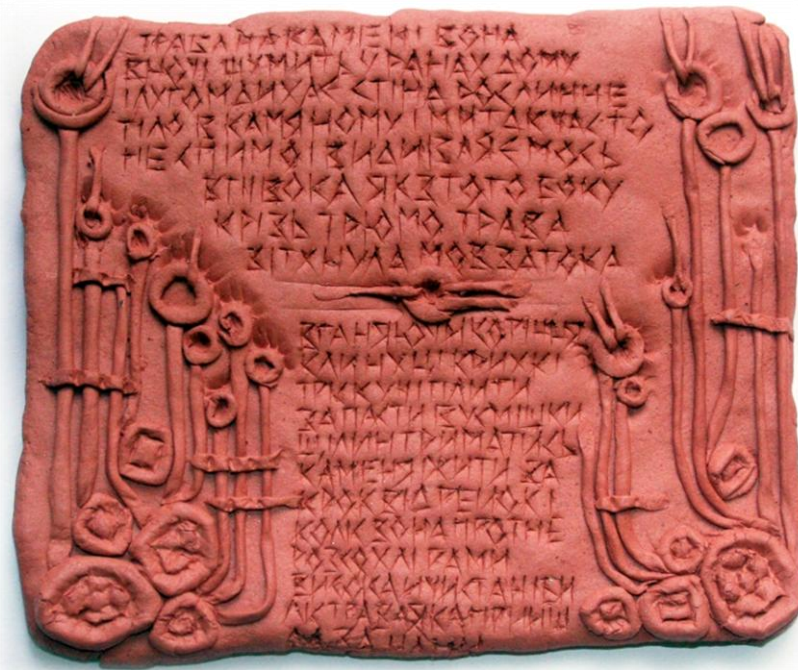 ТРАВА НА КАМЕНІ ВОНА
ВНОЧІ ШУМИТЬ У РАНАХ ДОМУ
І ЛУГОМ ДИХАЄ СТІНА РОСЛИННЕ
ТІЛО В КАМЯНОМУ І МИ ТАК ЧАСТО
НЕ СПИМО І ВИДИВЛЯЄМОСЬ
В ТІ ВОКА ЯК З ТОГО БОКУ
КРІЗЬ ТРЮМО ТРАВА
ВІТХНУЛА МОВ ЗАТОКА
ВГАНЯЮЧИ КОРІНЦЯ
В КРИХКІ
ПЛИТИ
ЗАПАСТИ В УСМІШКИ
ШИЛИН ТРИМАТИСЬ
КАМЕНЯ ЖИТИ ЗА
КРОК ВІД
ВОНА ПРОТНЕ
ВИСОКА И ЧИСТА НІБИ
ТРАВА ЯКА ПРИЙШ
ЛА ЗА НАМИ